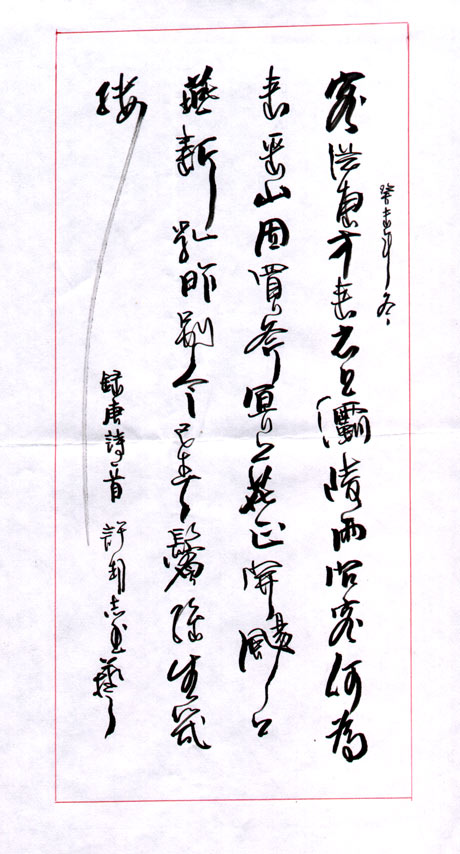 癸未年冬
客從東方來衣上灞陵雨問客何為
來采山因買斧冥冥花正開颺颺
燕新乳昨別今已春鬢絲生幾
縷
錄唐詩一首 許志